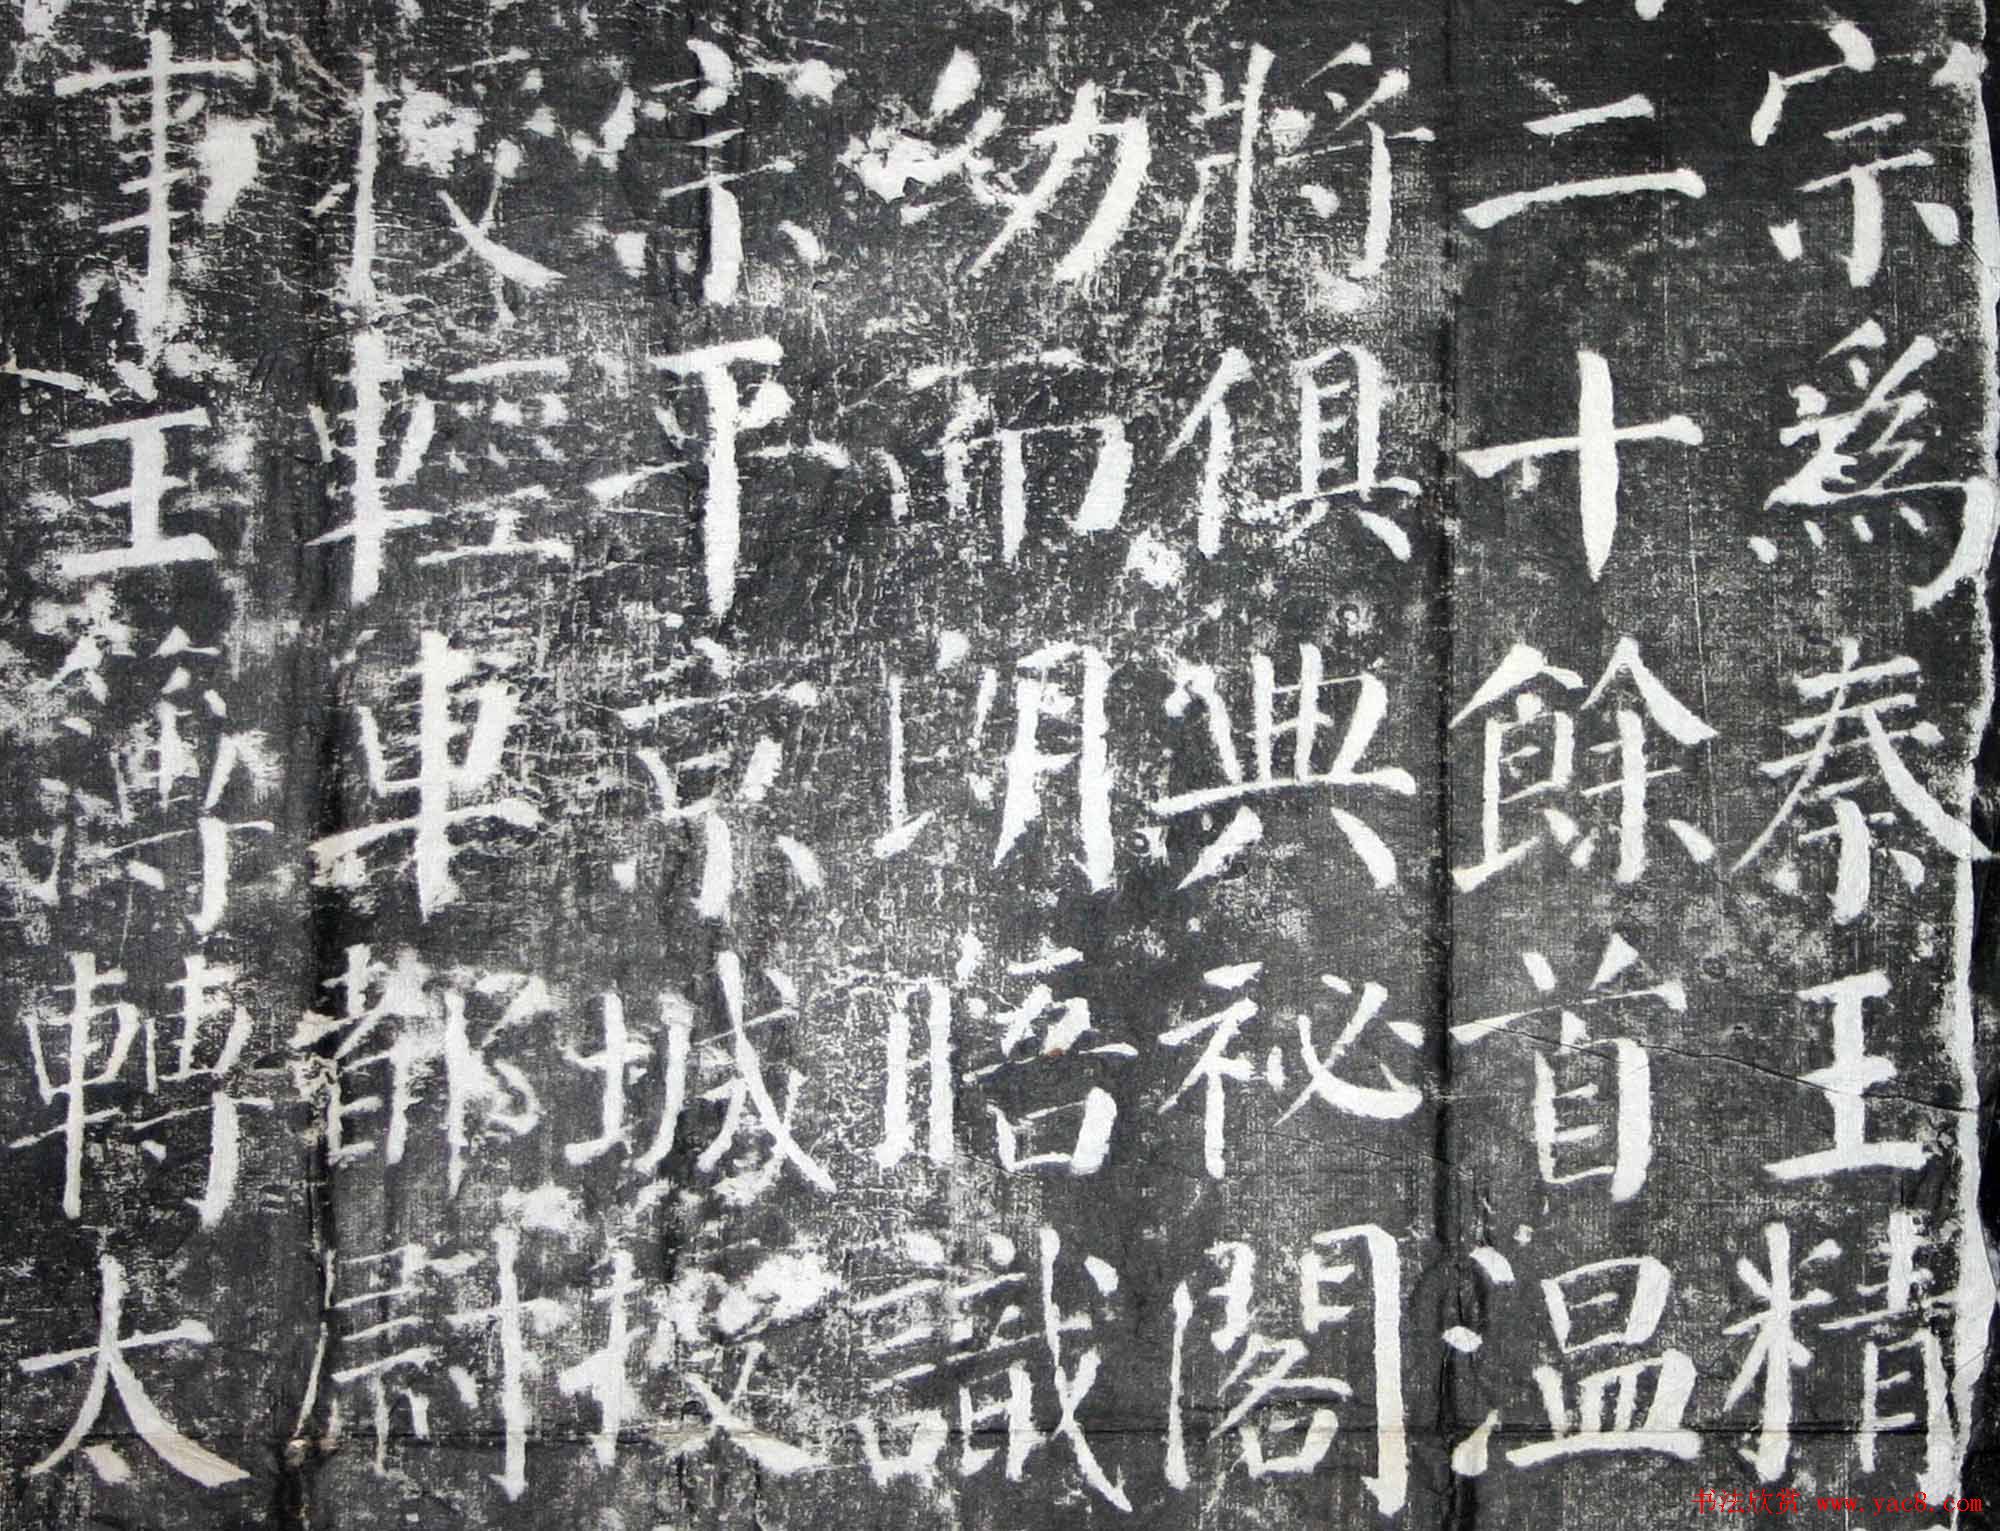 宗爲秦王精
二十餘首溫
將俱典祕閣
幼而朗晤識
宗平京城授
授輕車都尉
事主簿轉太
书法欣赏 www.yac8.com